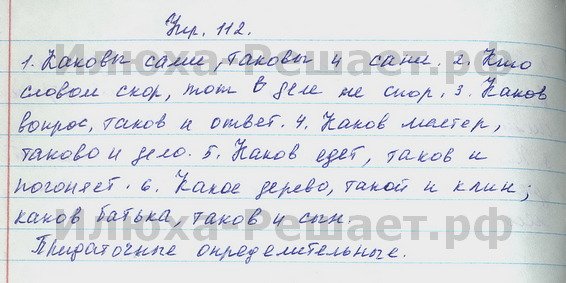 Упр. 112.
1. Каковы сами, таковы и сани. 2. Кто
словом скор, тот в деле не спор. 3. Каков
вопрос, таков и ответ. 4. Каков мастер,
таково и дело. 5. Каков едет, таков и
погоняет. 6. Какое дерево, такой и клин;
каков батька, таков и сын.
Придаточные определительные.
Илюха-Решает.рф
Илюха-Решает.рф
Илюха-Решает.рф